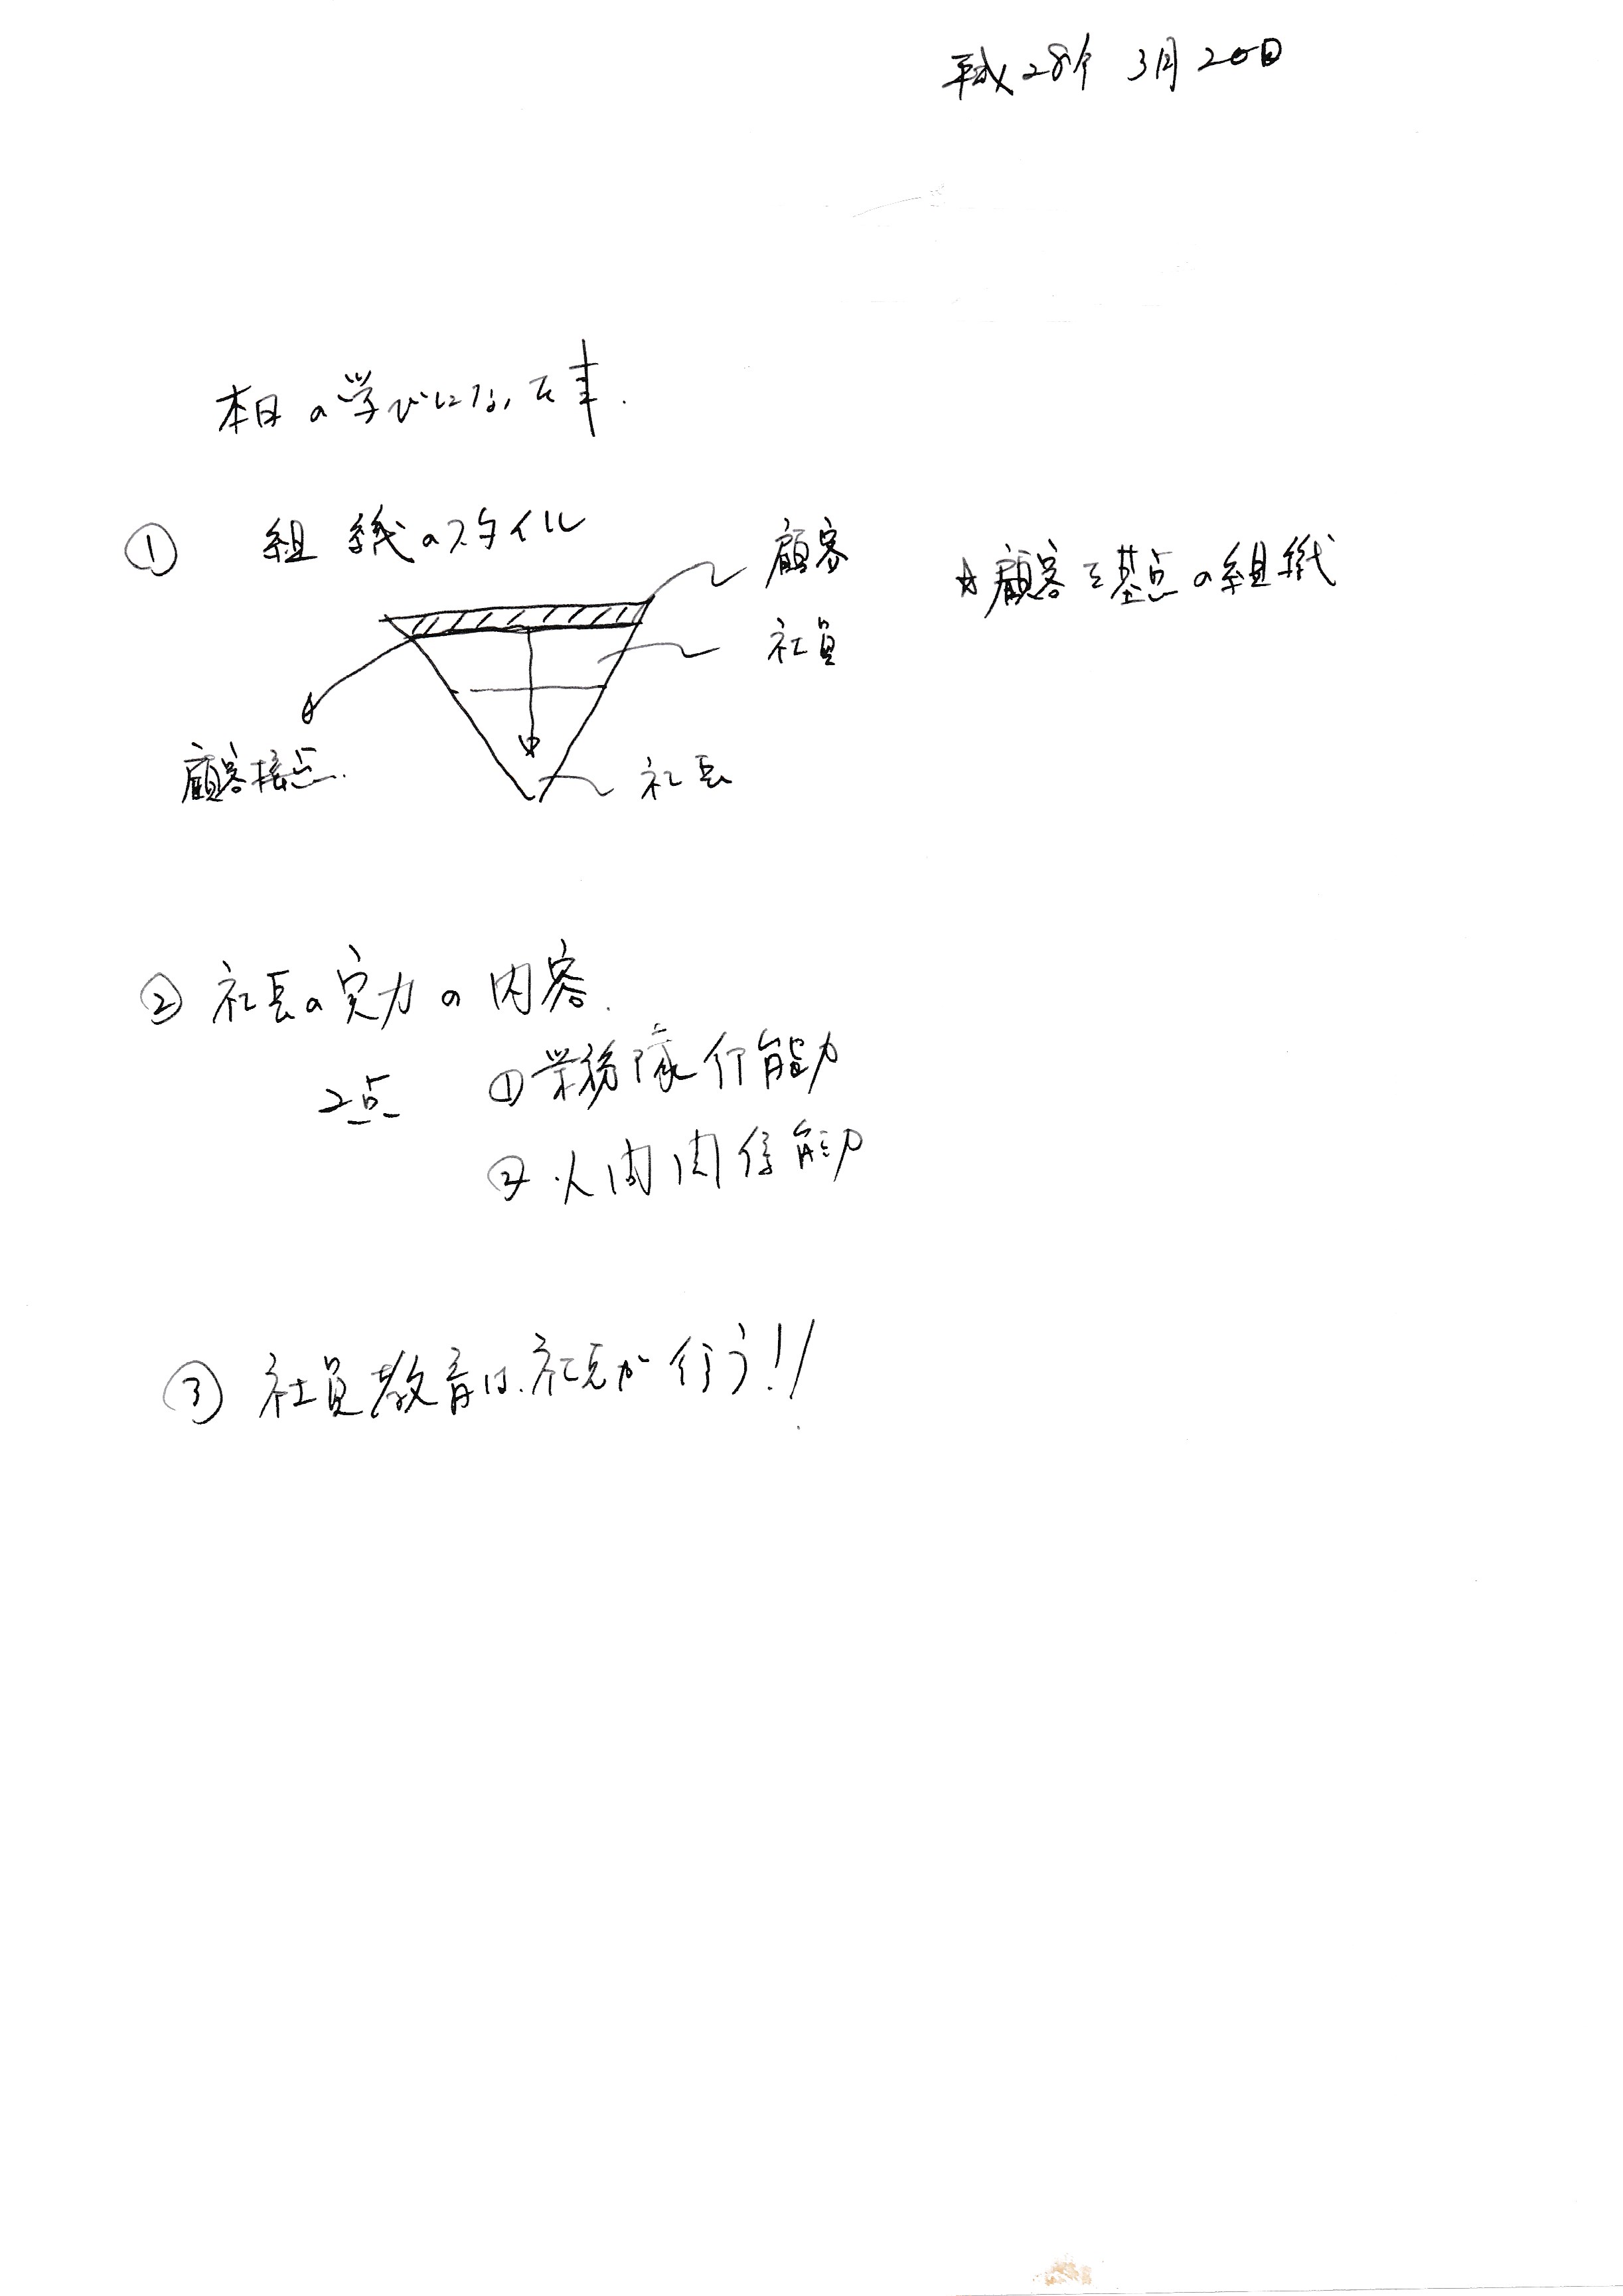 平成28年 3月20日
本日の学びになった事.
① 組織のスタイル
顧客
☆顧客を基点の組織
社員
顧客接点.
社長
② 社長の実力の内容.
2点 ①業務隊行能力
②人間関係能力
③ 社員教育は、社長が行う!!